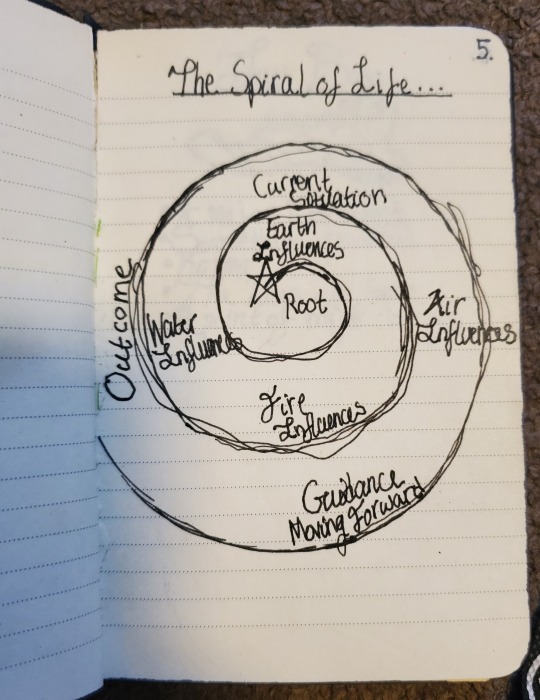 5.
The Spiral of Life...
Current
Situation
Earth
Influences
Root
Outcome
Water
Influences
Air
Influences
Fire
Influences
Guidance
Moving Forward